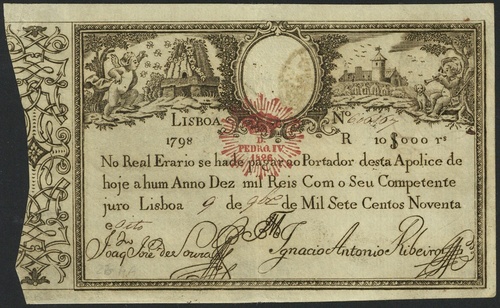 LISBOA Nº
1798 R 10$000 rˢ
D.
PEDRO IV.
1826
No Real Erario se hade pagar ao Portador desta Apolice de
hoje a hum Anno Dez mil Reis Com o Seu Competente
juro Lisboa 9 de de Mil Sete Centos Noventa
eoito
Joaq Jose de Souza Ignacio Antonio Ribeiro